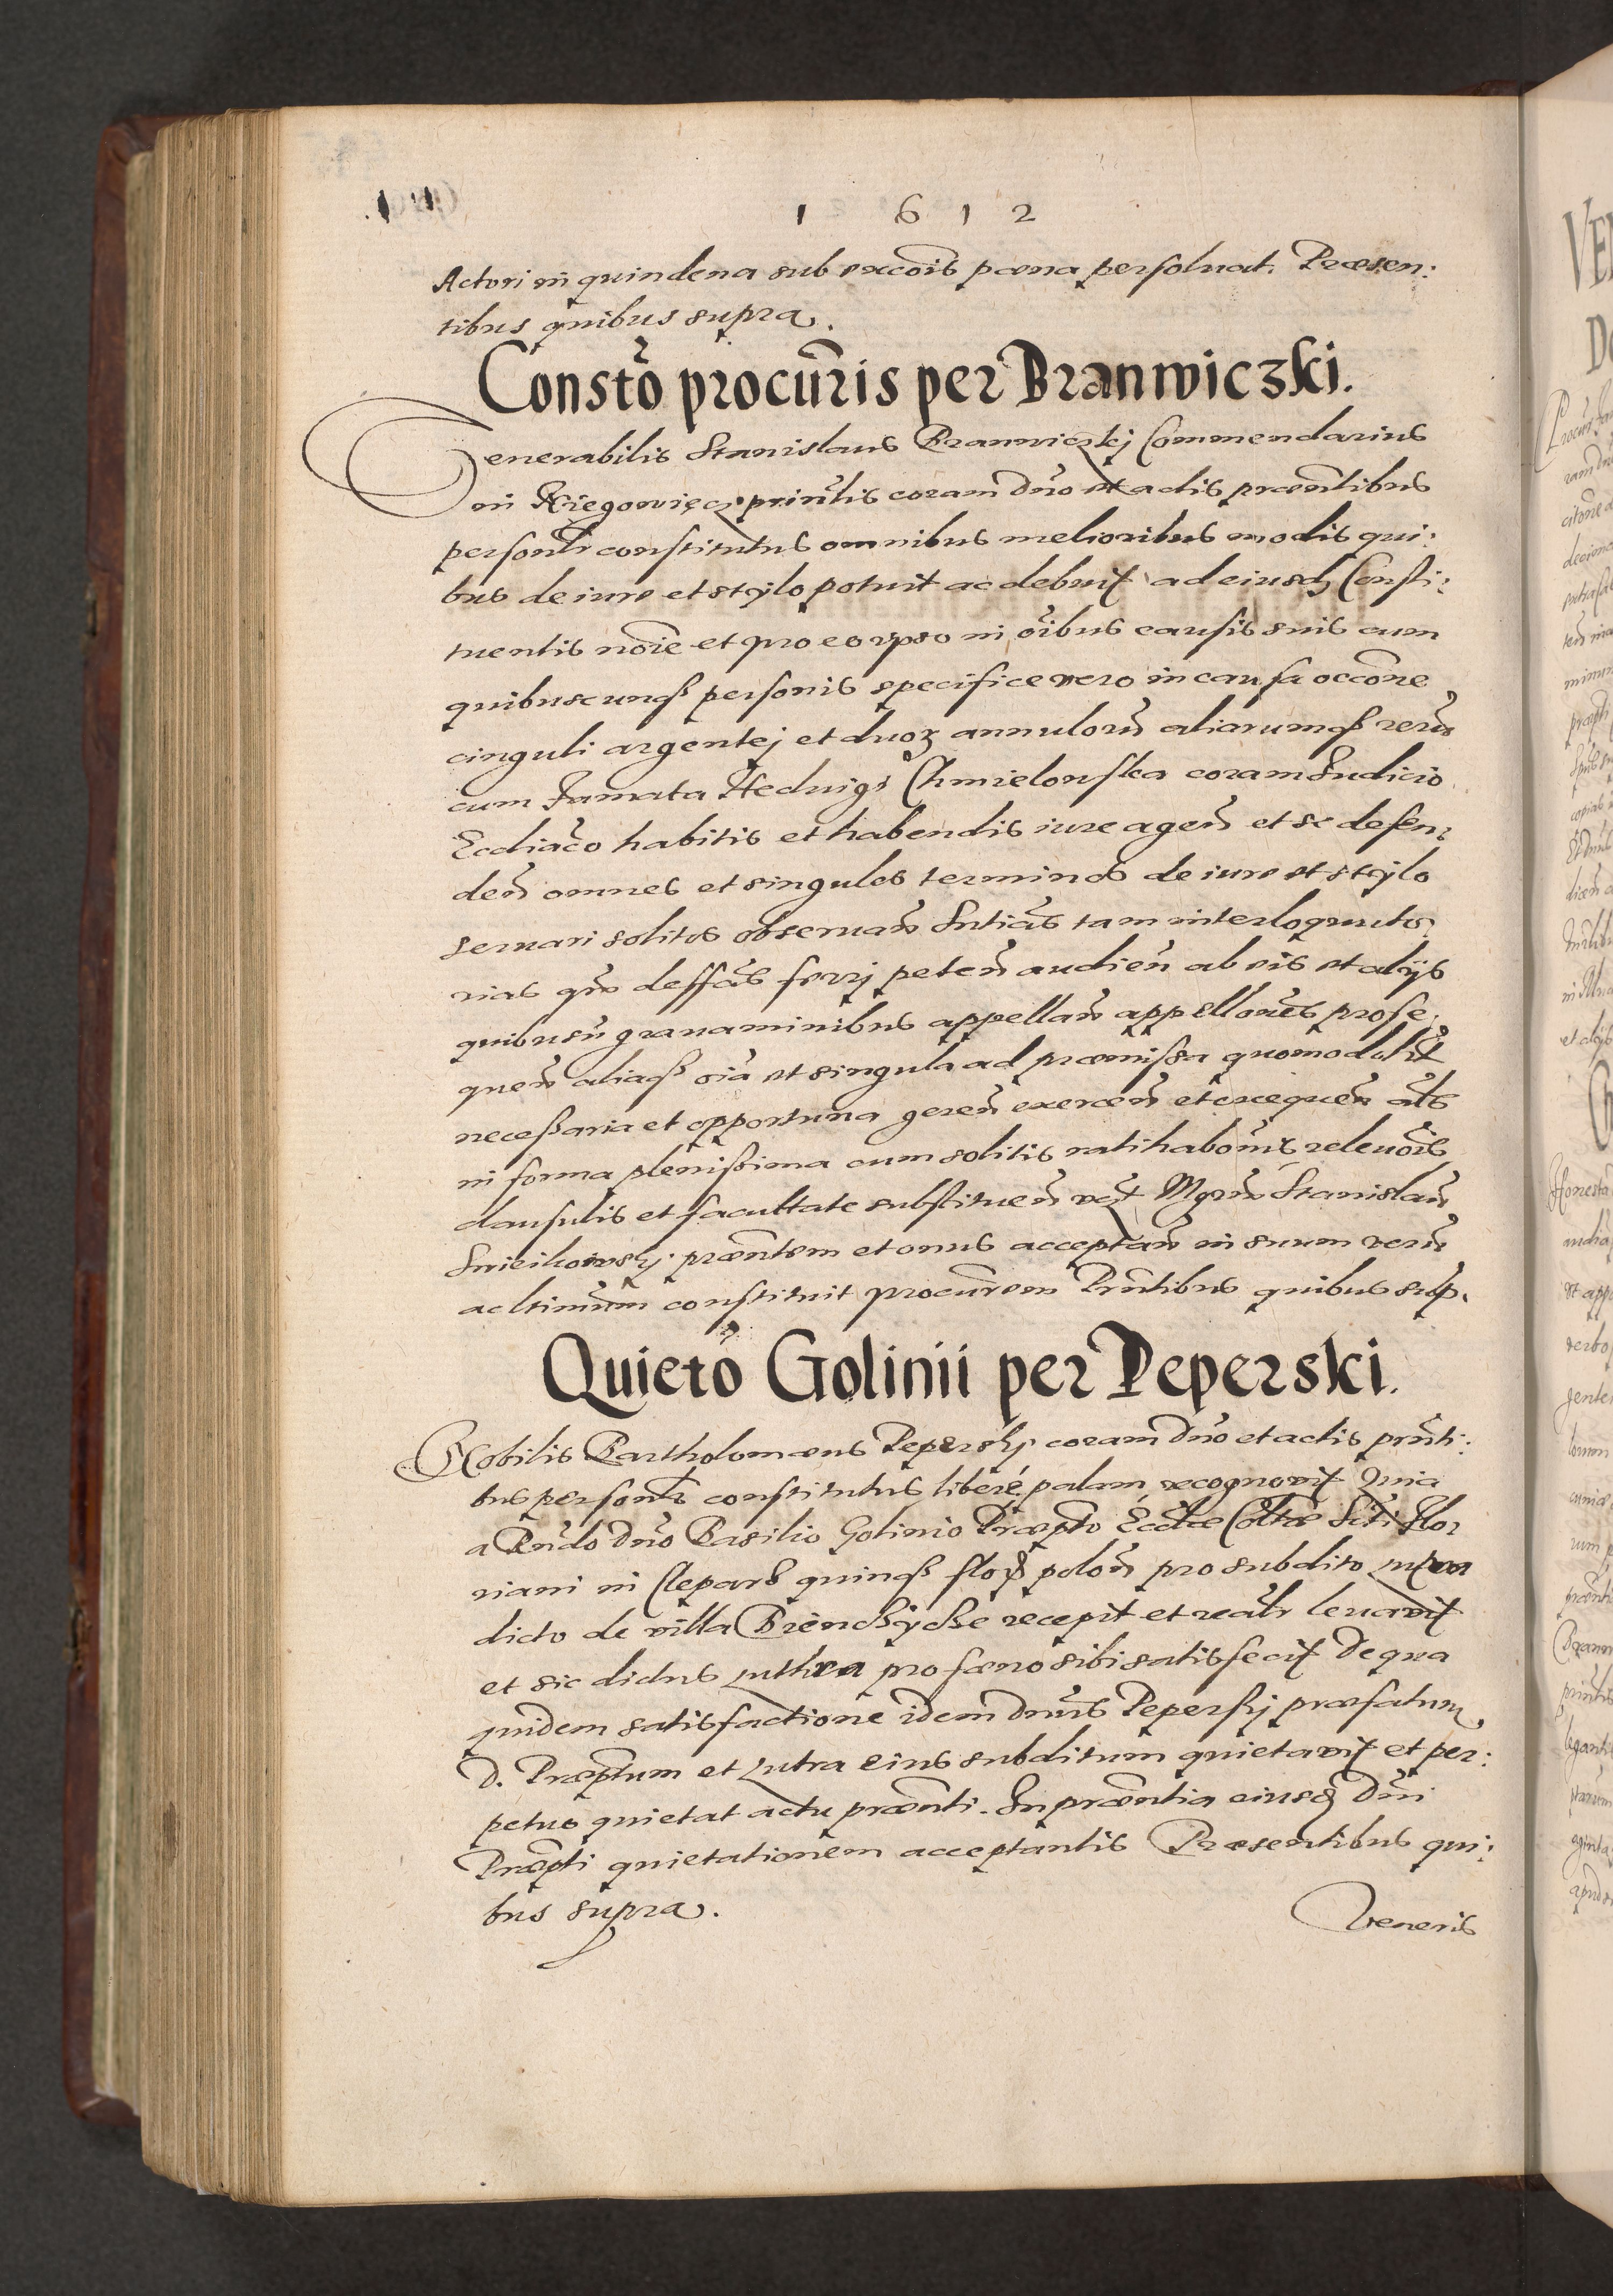 1 6 1 2
Actori in quindena sub exco͠is pœna persoluat. Præsen:
tibus quibus supra.
Consto͠ procur͠is per Branwiczki.
Venerabilis Stanislaus Branwiczkj Commendarius
in coram Dn͠o et actis præn͠tibus
person͠lr constitutus omnibus melioribus modis qui:
bus de iure et stylo potuit ac debuit ad eiusdꝫ Consti:
tuentis no͠ie et pro eo ipso in o͠ibus causis suis cum
quibuscunqꝫ personis specifice vero in causa occo͠ne
cinguli argentej et duoꝝ annuloru͠ aliarumqꝫ reru͠
cum famata Hedwigi Chmielowska coram Judicio
Ecclia͠co habitis et habendis iure agen͠ et se defen:
den͠ omnes et singulos terminos de iure et stylo
seruari solitos obseruan͠ Sn͠tias tam interloquuto:
rias qm͠ deff͠as ferrj peten͠ audien͠ ab eis et alijs
quibusu͠ grauaminibus appellan͠ appello͠nes prose:
quen͠ aliaqꝫ o͠ia et singula ad præmissa quomodolt͠
necessaria et opportuna geren͠ exercen͠ et exequen͠ al͠s
in forma plenissima cum solitis ratihabo͠nis releuo͠is
clausulis et facultate substituen͠ Mgr͠m Stanislau͠
præn͠tem et onus acceptan͠ in suum veru͠
ac ltimum͠ constituit procur͠em Prn͠tibus quibus sup.
Quieto͠ Golinii per Peperski.
Nobilis Bartholomæus Peperskj coram Dn͠o et actis prn͠ti:
bus person͠lr constitutus liberè palam recognouit Quia
a Rn͠do Dn͠o Basilio Golinio Præpto͠ Eccl͠æ Coll͠tæ Scti͠ Flo:
riani in Clepars quinqꝫ polon͠ pro subdito Lutra
dicto de villa recepit et real͠r leuauit
et sic dictus Luthra pro fœno sibi satisfecit De qua
quidem satisfactione idem Dnu͠s Peperskj præfatum
D. Præptu͠m et Lutra eius subditum quietauit et per:
petuo quietat actu præn͠ti. In præn͠tia eiusdꝫ Dn͠i
Præpti͠ quietationem acceptantis Præsentibus qui:
bus supra.
Veneris